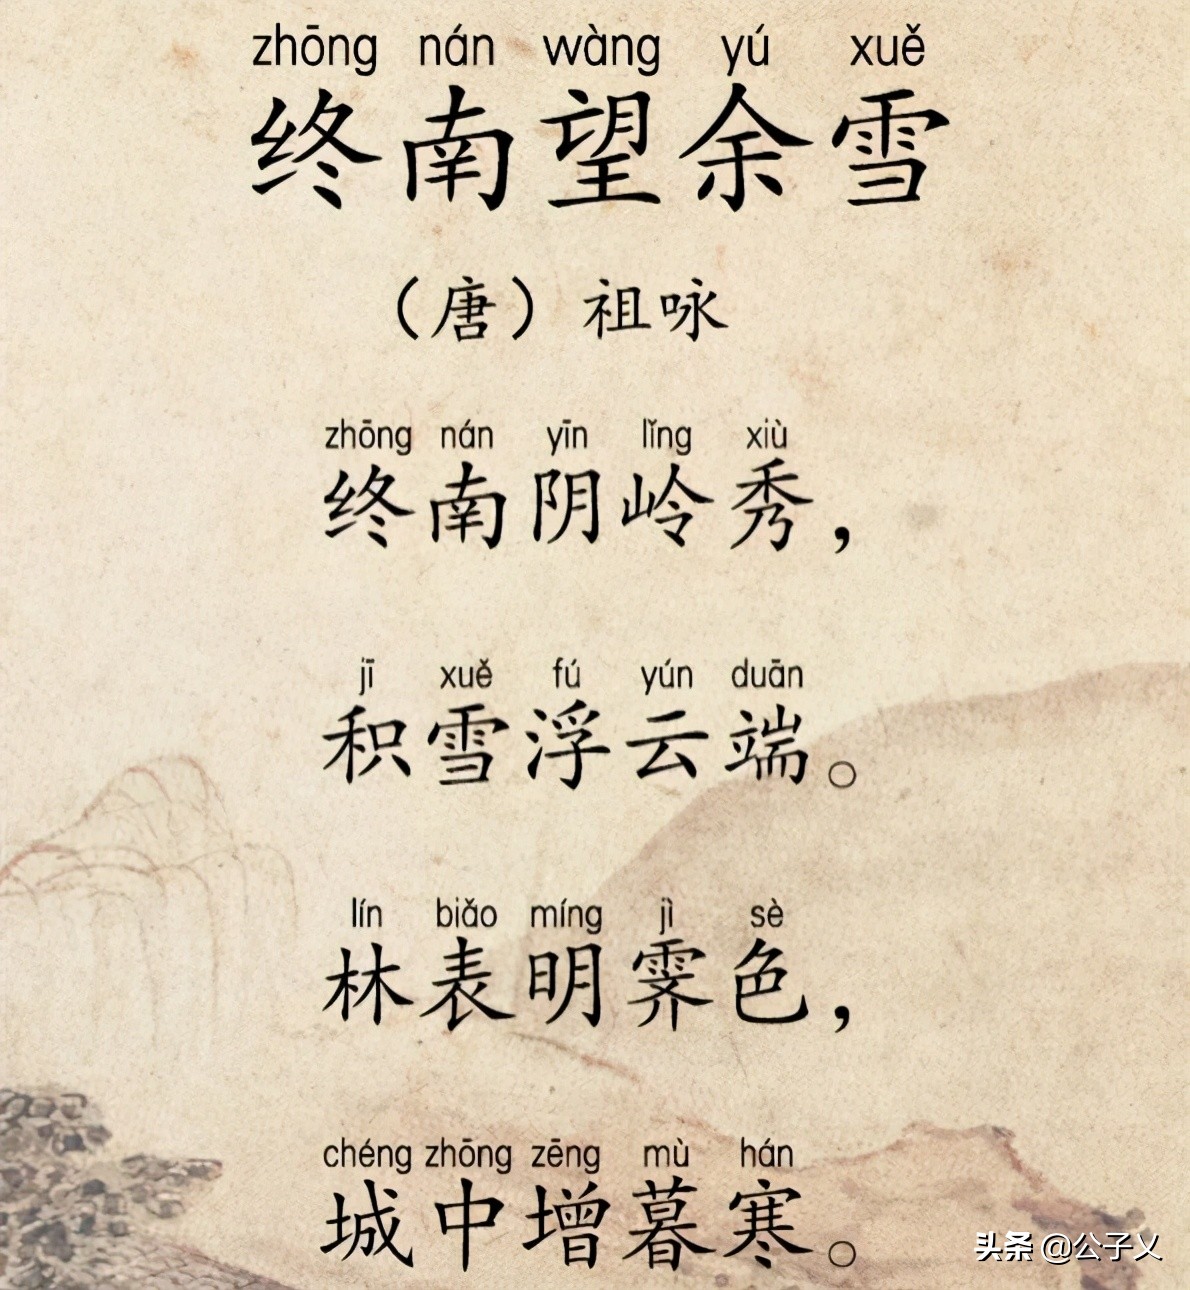 zhōng nán wàng yú xuě
终南望余雪
（唐）祖咏
zhōng nán yīn lǐng xiù
终南阴岭秀，
jī xuě fú yún duān
积雪浮云端。
lín biǎo míng jì sè
林表明霁色，
chéng zhōng zēng mù hán
城中增暮寒。
头条 @公子义